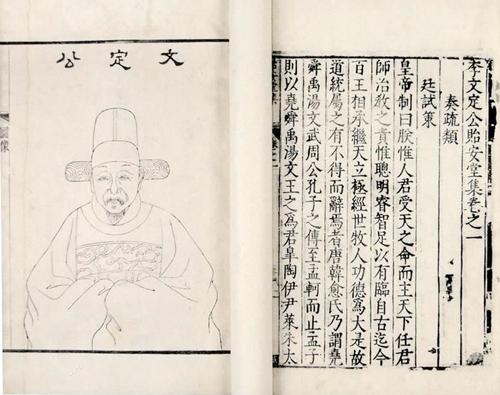 李文定公貽安堂集卷之一
奏疏類
廷試策
皇帝制曰朕惟人君受天之命而主天下任君
師治教之責惟聰明睿智足以有臨自古迄今
百王相承繼天立極經世牧人功德爲大是故
道統屬之有不得而辭焉者唐韓愈氏乃謂堯
舜禹湯文武周公孔子之傳至孟軻而止孟子
則以堯舜禹湯文王之爲君皐陶伊尹萊朱太
文定公
像